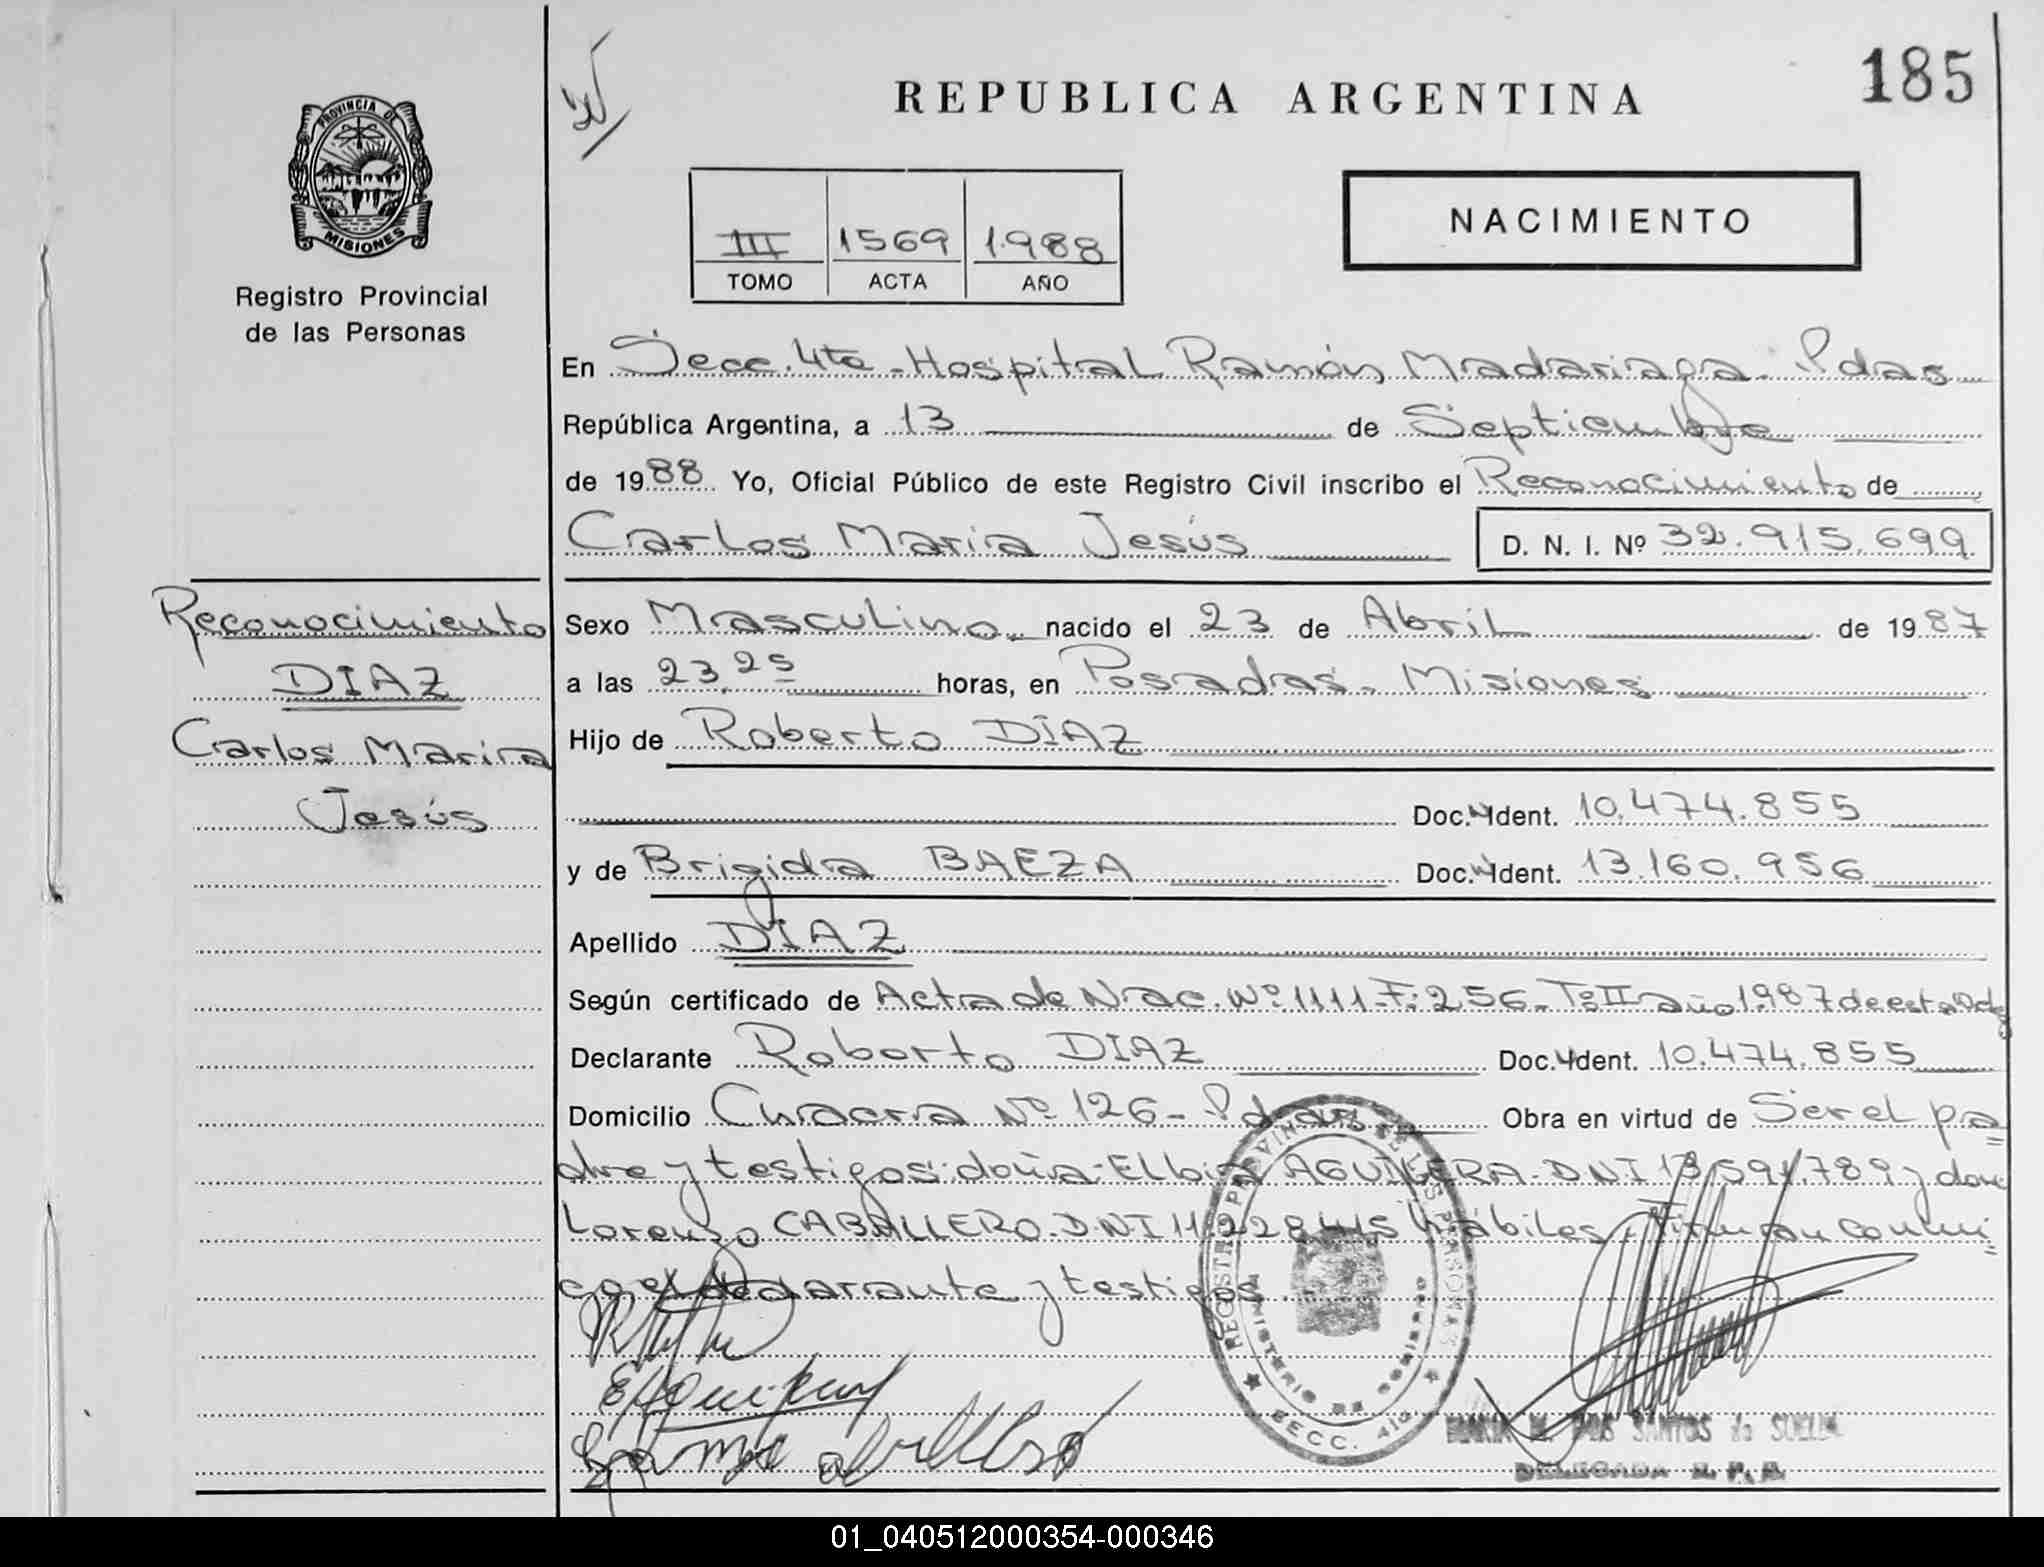 185
REPUBLICA ARGENTINA
PROVINCIA DE
MISIONES
Registro Provincial
de las Personas
III 1569 1.988
TOMO ACTA AÑO
NACIMIENTO
En Secc. 4ta - Hospital Ramón Madariaga. Pdas
República Argentina, a 13 de Septiembre
de 1988 Yo, Oficial Público de este Registro Civil inscribo el Reconocimiento de
Carlos Maria Jesús D. N. I. Nº 32.915.699
Reconocimiento
DIAZ
Carlos Maria
Jesús
Sexo Masculino nacido el 23 de Abril de 1987
a las 23,25 horas, en Posadas - Misiones
Hijo de Roberto DÍAZ
Doc. Ident. 10.474.855
y de Brigida BAEZA Doc. Ident. 13.160.956
Apellido DÍAZ
Según certificado de Acta de Nac. Nº 1111-F: 256-Tº II año 1987 de esta
Declarante Roberto DIAZ Doc. Ident. 10.474.855
Domicilio Chacra Nº 126 - Pdas Obra en virtud de Ser el pa=
dre y testigos: doña: Elbia AGUILERA. DNI 13.591.789 y don
Lorenzo CABALLERO. DNI 11.228.415 Hábiles. Firman conmi=
go el declarante y testigos
REGISTRO PROVINCIAL DE LAS PERSONAS
MINISTERIO DE GOBIERNO
SECC. 4ta
MARIA M. DOS SANTOS de
DELEGADA R. P. P.
01_040512000354-000346